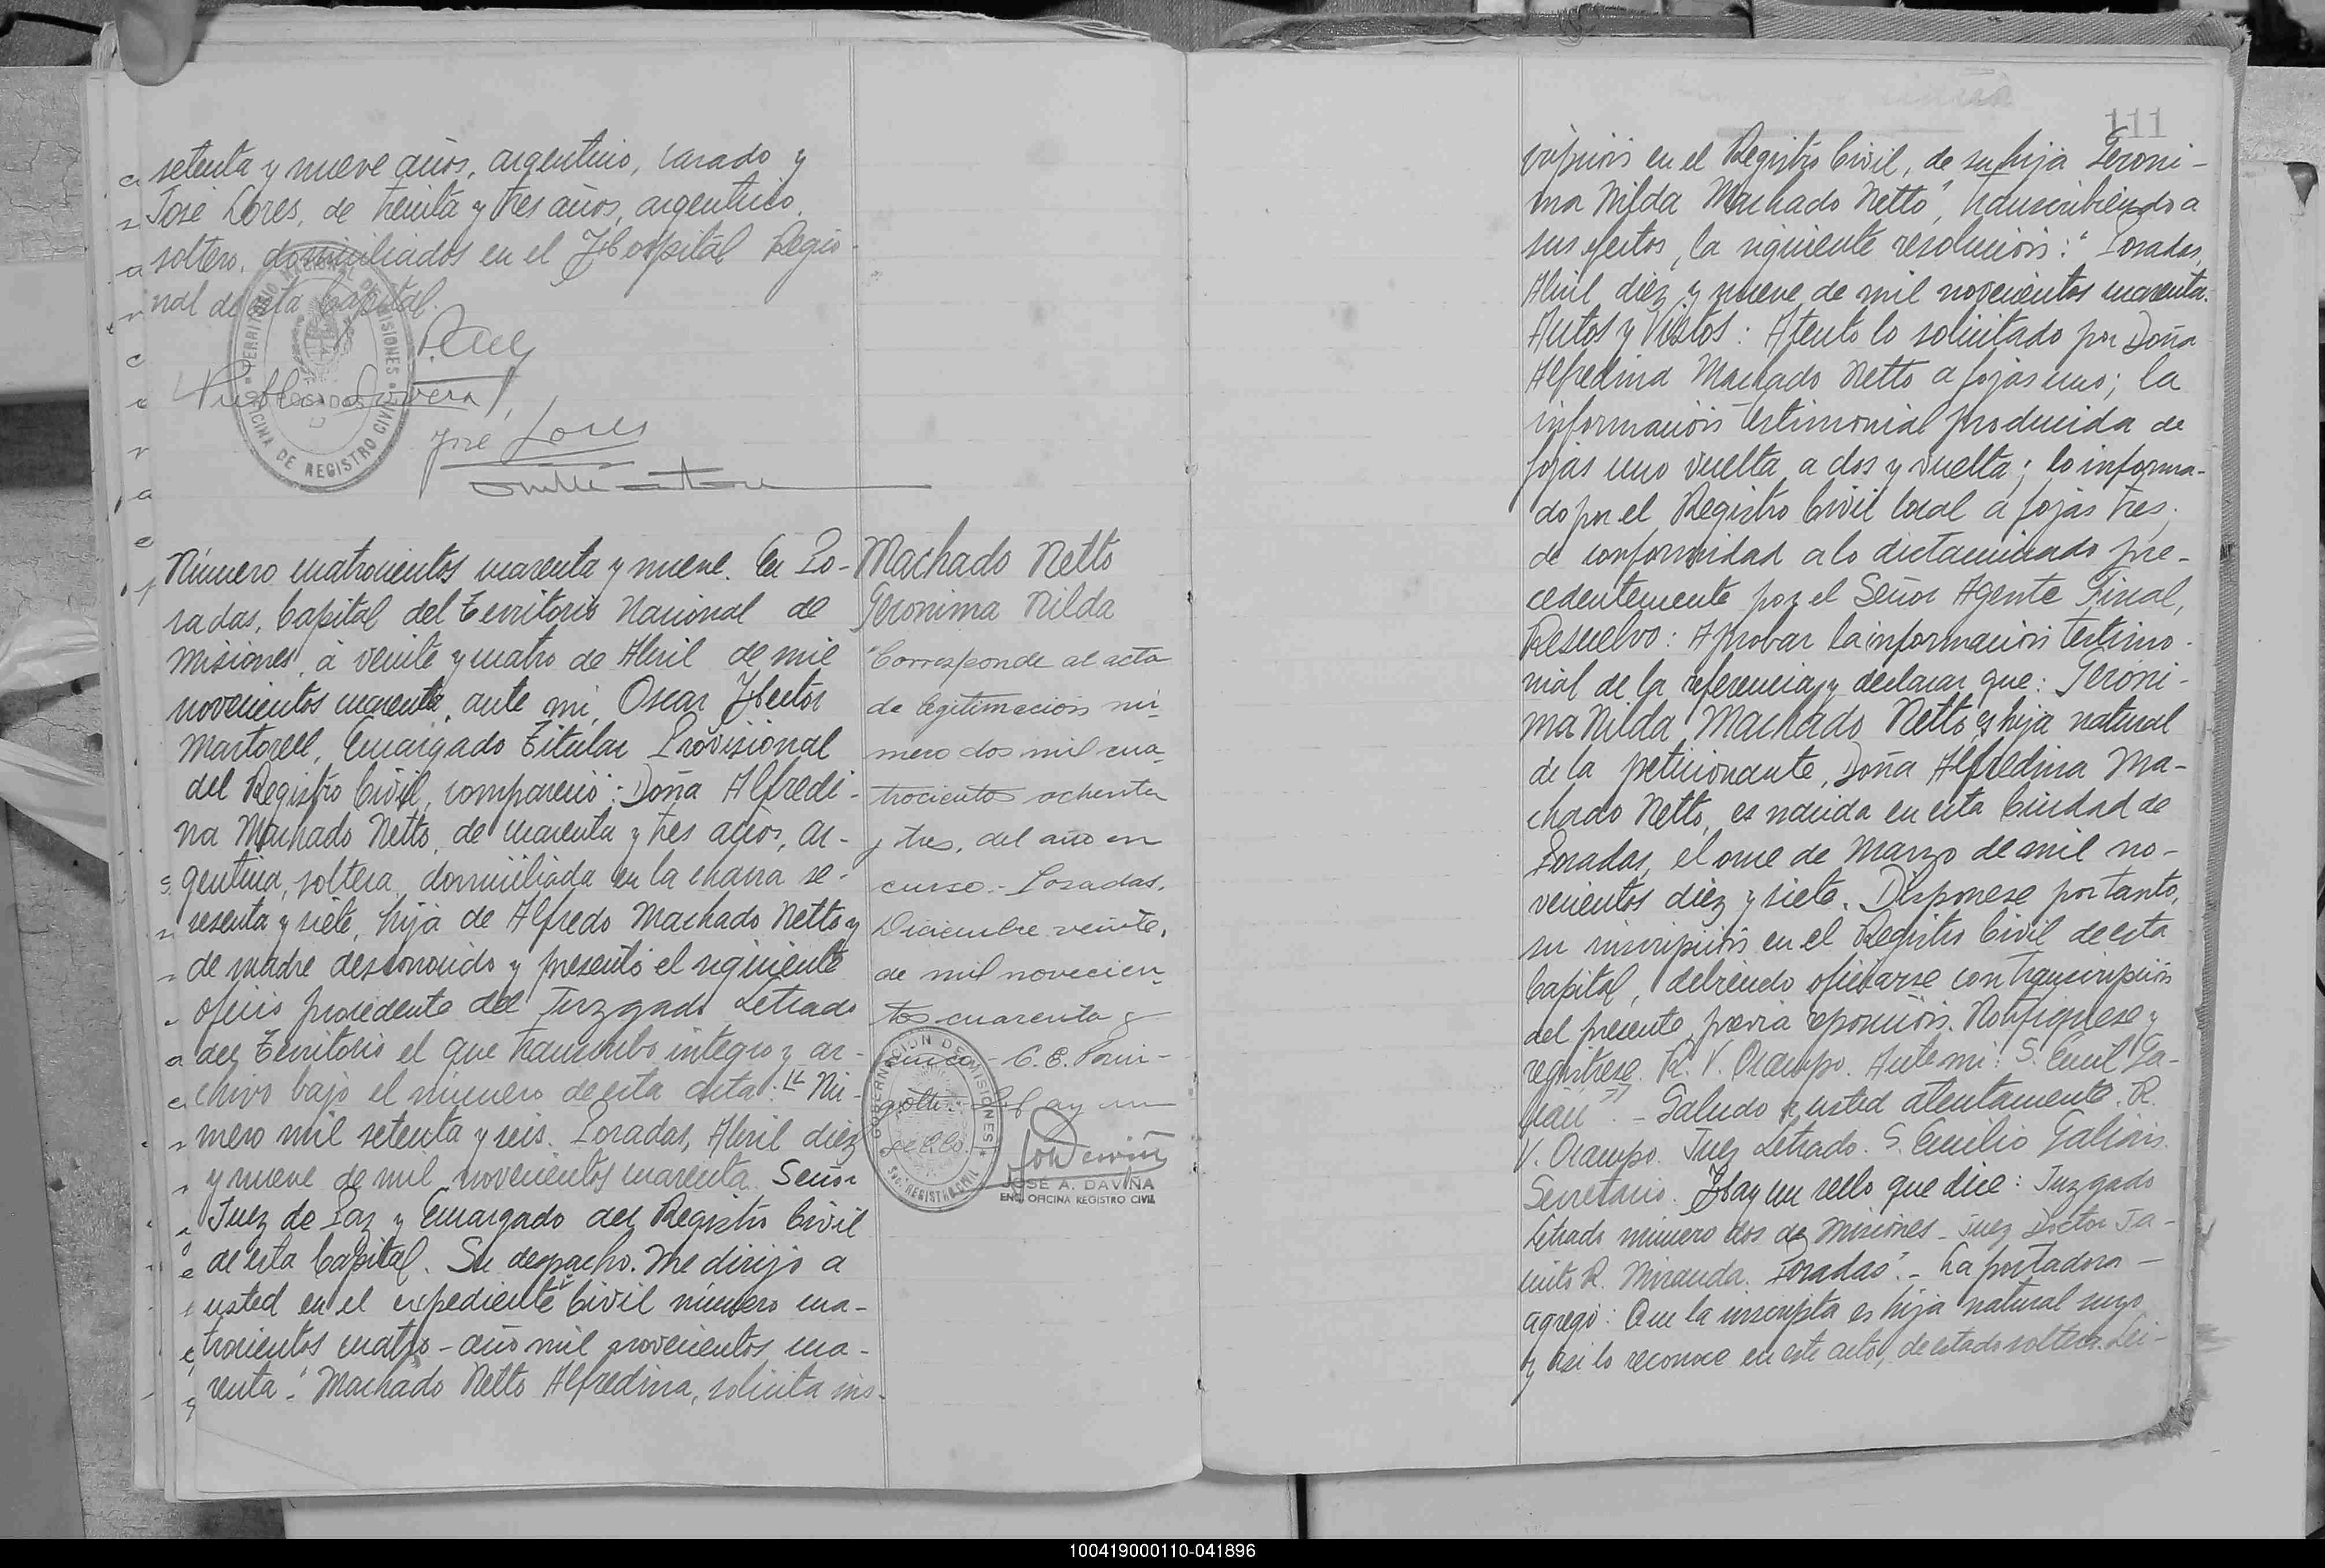 setenta y nueve años, argentino, casado y
José Lores, de treinta y tres años, argentino,
soltero, domiciliados en el Hospital Regio-
nal de esta Capital.
TERRITORIO NACIONAL DE MISIONES
POSADAS
OFICINA DE REGISTRO CIVIL
José Lores
Número cuatrocientos cuarenta y nueve. En Po-
sadas, Capital del Territorio Nacional de
Misiones, á veinte y cuatro de Abril de mil
novecientos cuarenta, ante mi, Oscar Hector
Martorell, Encargado Titular Provisional
del Registro Civil, compareció: Doña Alfredi-
na Machado Netto, de cuarenta y tres años, ar-
gentina, soltera, domiciliada en la chacra se-
senta y siete, hija de Alfredo Machado Netto y
de madre desconocido y presentó el siguiente
oficio procedente del Juzgado Letrado
del Territorio el que transcribo integro y ar-
chivo bajo el número de esta acta: "Nú-
mero mil setenta y seis. Posadas, Abril diez
y nueve de mil novecientos cuarenta. Señor
Juez de Paz y Encargado del Registro Civil
de esta Capital. Su despacho. Me dirijo a
usted en el expediente Civil número cua-
trocientos cuatro - año mil novecientos cua-
renta - "Machado Netto Alfredina, solicita ins-
Machado Netto
Geronima Nilda
"Corresponde al acta
de legitimación nú-
mero dos mil cua-
trocientos ochenta
y tres, del año en
curso.- Posadas,
Diciembre veinte,
de mil novecien-
tos cuarenta y
cinco - C. E.
Hay un
sello.
GOBERNACION DE MISIONES
REGISTRO CIVIL
JOSÉ A. DAVIÑA
ENC. OFICINA REGISTRO CIVIL
111
cripción en el Registro Civil, de su hija Geroni-
ma Nilda Machado Netto", transcribiendo a
sus efectos, la siguiente resolución: "Posadas,
Abril diez y nueve de mil novecientos cuarenta.
Autos y Vistos: Atento lo solicitado por Doña
Alfredina Machado Netto a fojas uno; la
información testimonial producida de
fojas uno vuelta a dos y vuelta; lo informa-
do por el Registro Civil local a fojas tres;
de conformidad a lo dictaminado pre-
cedentemente por el Señor Agente Fiscal,
Resuelvo: Aprobar la información testimo-
nial de la referencia y declarar que: Geroni-
ma Nilda Machado Netto es hija natural
de la peticionante, Doña Alfredina Ma-
chado Netto, es nacida en esta Ciudad de
Posadas, el once de Marzo de mil no-
vecientos diez y siete. Disponese por tanto,
su inscripción en el Registro Civil de esta
Capital, debiendo oficiarse con transcripción
del presente, previa reposición. Notifiquese y
registrese. R. V. Ocampo. Ante mi: S. Emil Ga-
". - Saludo a usted atentamente. R.
V. Ocampo. Juez Letrado. S. Emilio Galiais.
Secretario. Hay un sello que dice: Juzgado
Letrado número dos de Misiones - Juez Doctor Ja-
cinto R. Miranda. Posadas". - La portadora -
agregó: Que la inscripta es hija natural suya
y asi lo reconoce en este acto, de estado soltera. Lei-
100419000110-041896